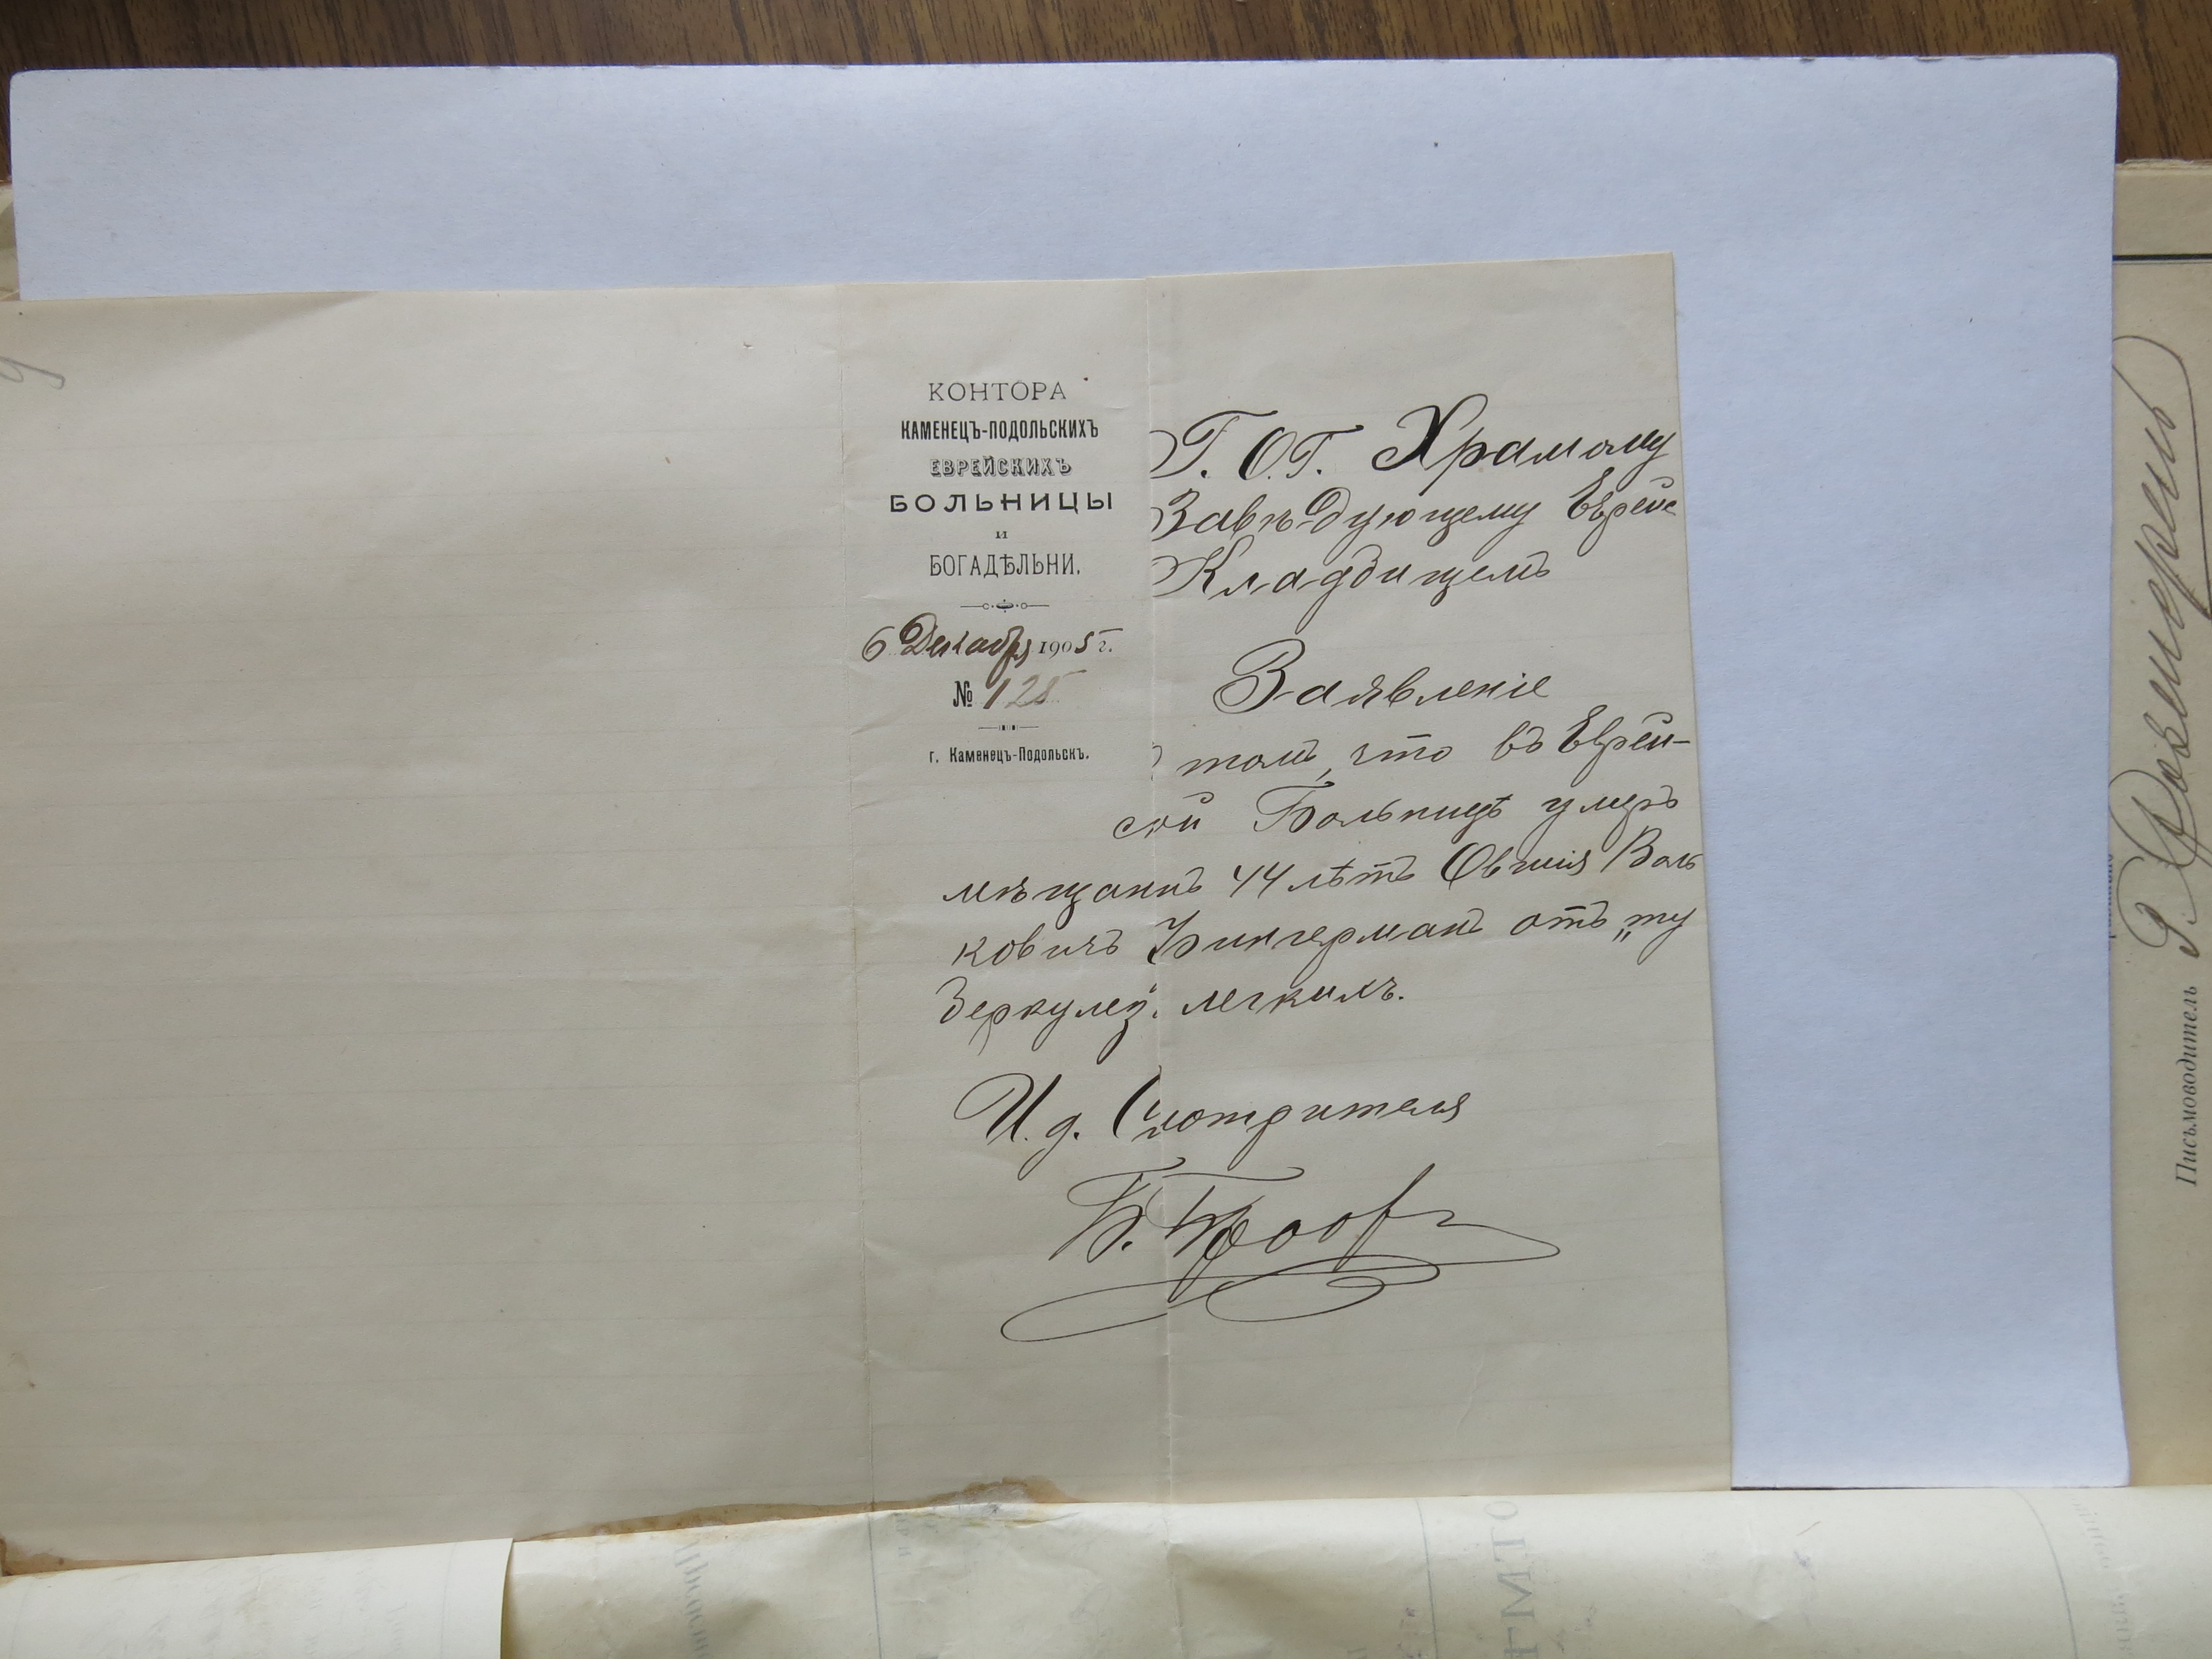 КОНТОРА
КАМЕНЕЦЪ-ПОДОЛЬСКИХЪ
ЕВРЕЙСКИХЪ
БОЛЬНИЦЫ
и
БОГАДѢЛЬНИ.
6 Декабря 1905 г.
№ 125
г. Каменецъ-Подольскъ.
Г. О.Г. Храмому
Завѣдующему Еврейс
Кладбищемъ
Заявленіе
томъ, что въ Еврей-
ской Больницѣ умеръ
мѣщанинъ 44 лѣтъ Овшія Воль
ковичъ Бингерманъ отъ „ту
беркулез. легкихъ.
И. д. Смотрителя
Письмоводитель